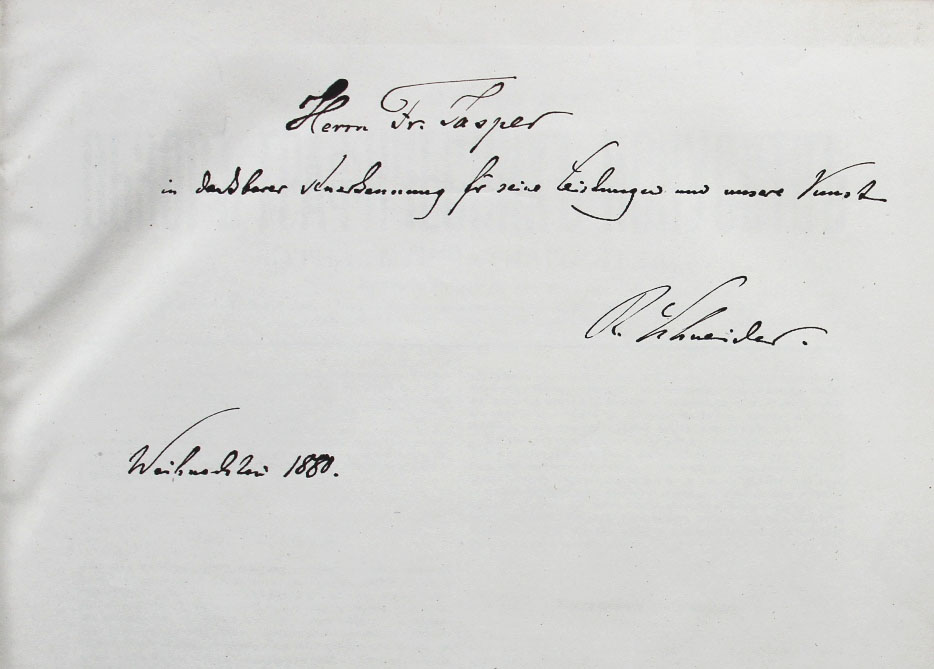 Herrn Fr. Jasper
in dankbarer Anerkennung für seine Leistungen um unsere Kunst
R. Schneider.
Weihnachten 1880.